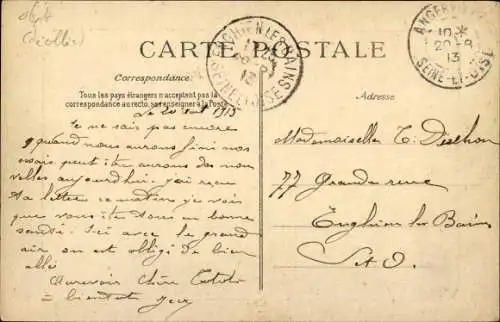 CARTE POSTALE
Correspondance
Tous les pays étrangers n'acceptent pas la
correspondance au recto, se renseigner à la Poste
Adresse
ENGHIEN LES BAINS
SEINE ET OISE
ANGERV
10*
20-8
13
SEINE-ET-OISE
Le 20 1913
Je ne sais pas encore
quand nous aurons fini nos
essais peut être aurons des nou
velles aujourd'hui. j'ai reçu
ta lettre ce matin je vois
que vous êtes tous en bonne
santé. Ici avec le grand
air on est obligé de bien
allé
Aurevoir Chère
à bientôt
Mademoiselle
77 Grande rue
Enghien les Bains
S & O.